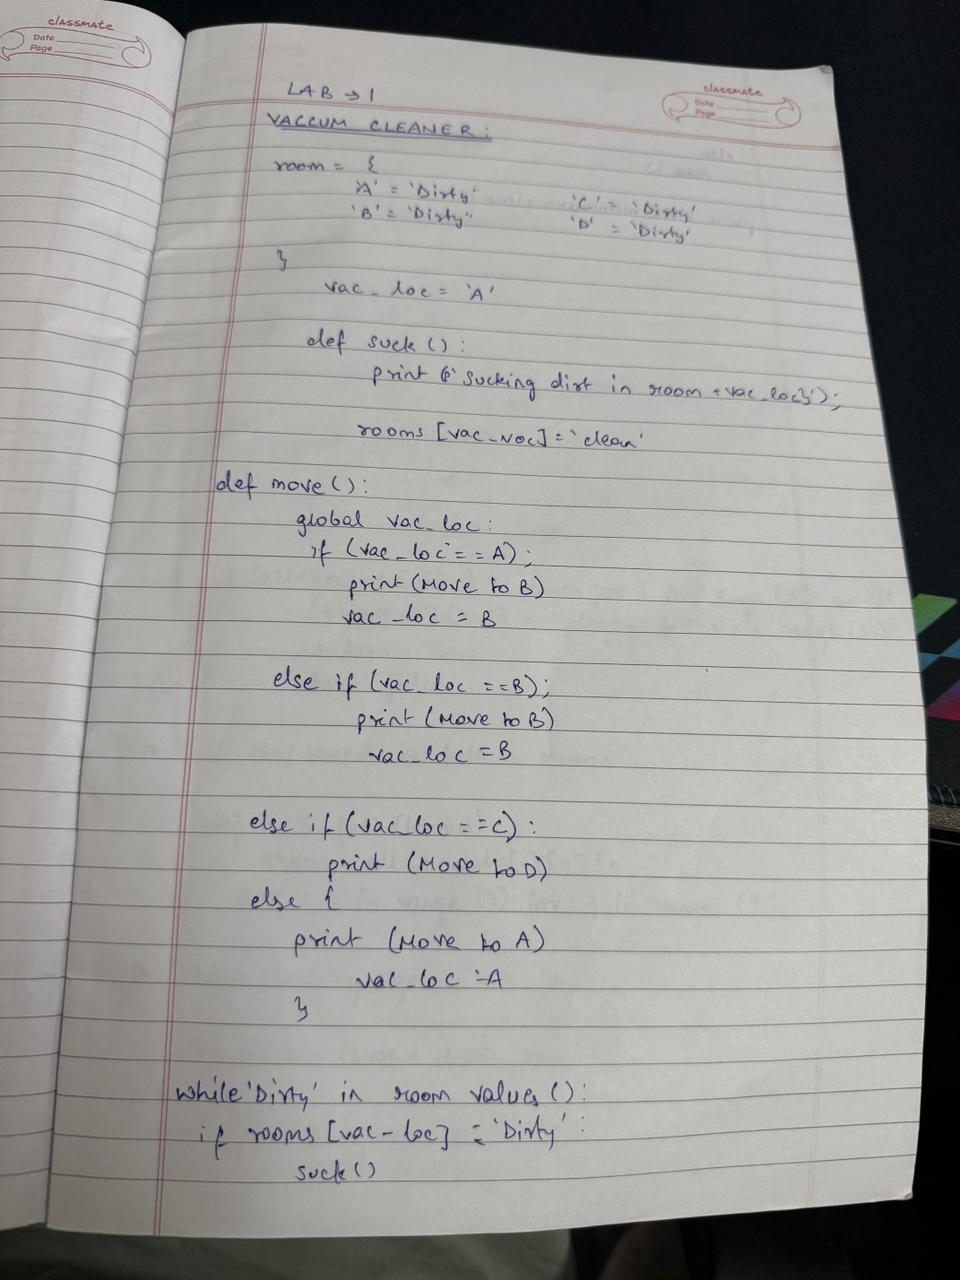 classmate
Date
Page
classmate
Date
Page
LAB → 1
VACCUM CLEANER:
room = {
'A' = 'Dirty' 'C' = 'Dirty'
'B' = 'Dirty" 'D' = 'Dirty'
}
vac_loc = 'A'
def suck ():
print (f' sucking dirt in room {vac_loc}');
rooms [vac_loc] = 'clean'
def move ():
global vac_loc:
if (vac_loc == A);
print (Move to B)
vac_loc = B
else if (vac_loc ==B);
print (Move to B)
vac_loc = B
else if (vac_loc ==C):
print (Move to D)
else {
print (Move to A)
vac_loc =A
}
while 'Dirty' in room values ():
if rooms [vac-loc] = 'Dirty':
suck ()